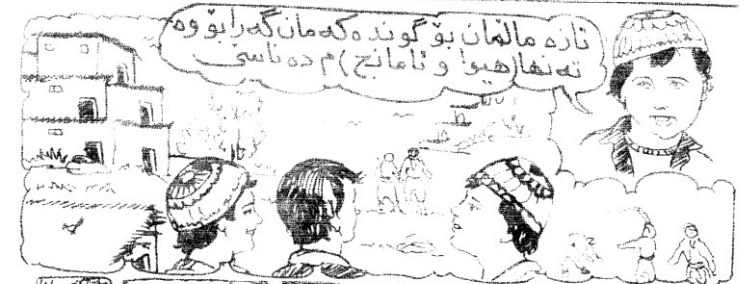 تازە ماڵمان بۆ گوندەکەمان گەرابۆوە
تەنها(هیوا و ئامانج)م دەناسی